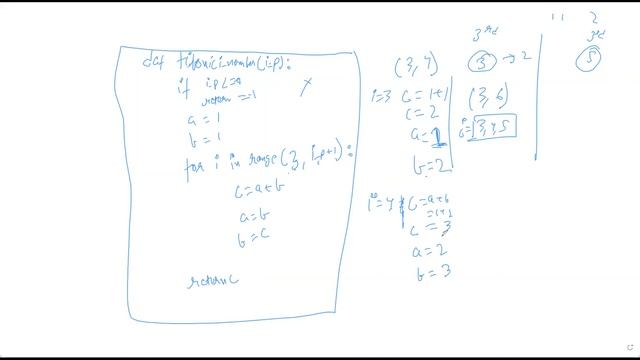 def fibonici_number(i_p):
if i_p <= 0
return = -1
a = 1
b = 1
for i in range(3, i_p+1):
c = a+b
a = b
b = c
return c
(3, 4)
i=3 c = 1+1
c = 2
a = 1
b = 2
i=4 c = a+b
= 1+2
c = 3
a = 2
b = 3
3rd
3 → 2
(3, 6)
3, 4, 5
1 1 2
3rd
5